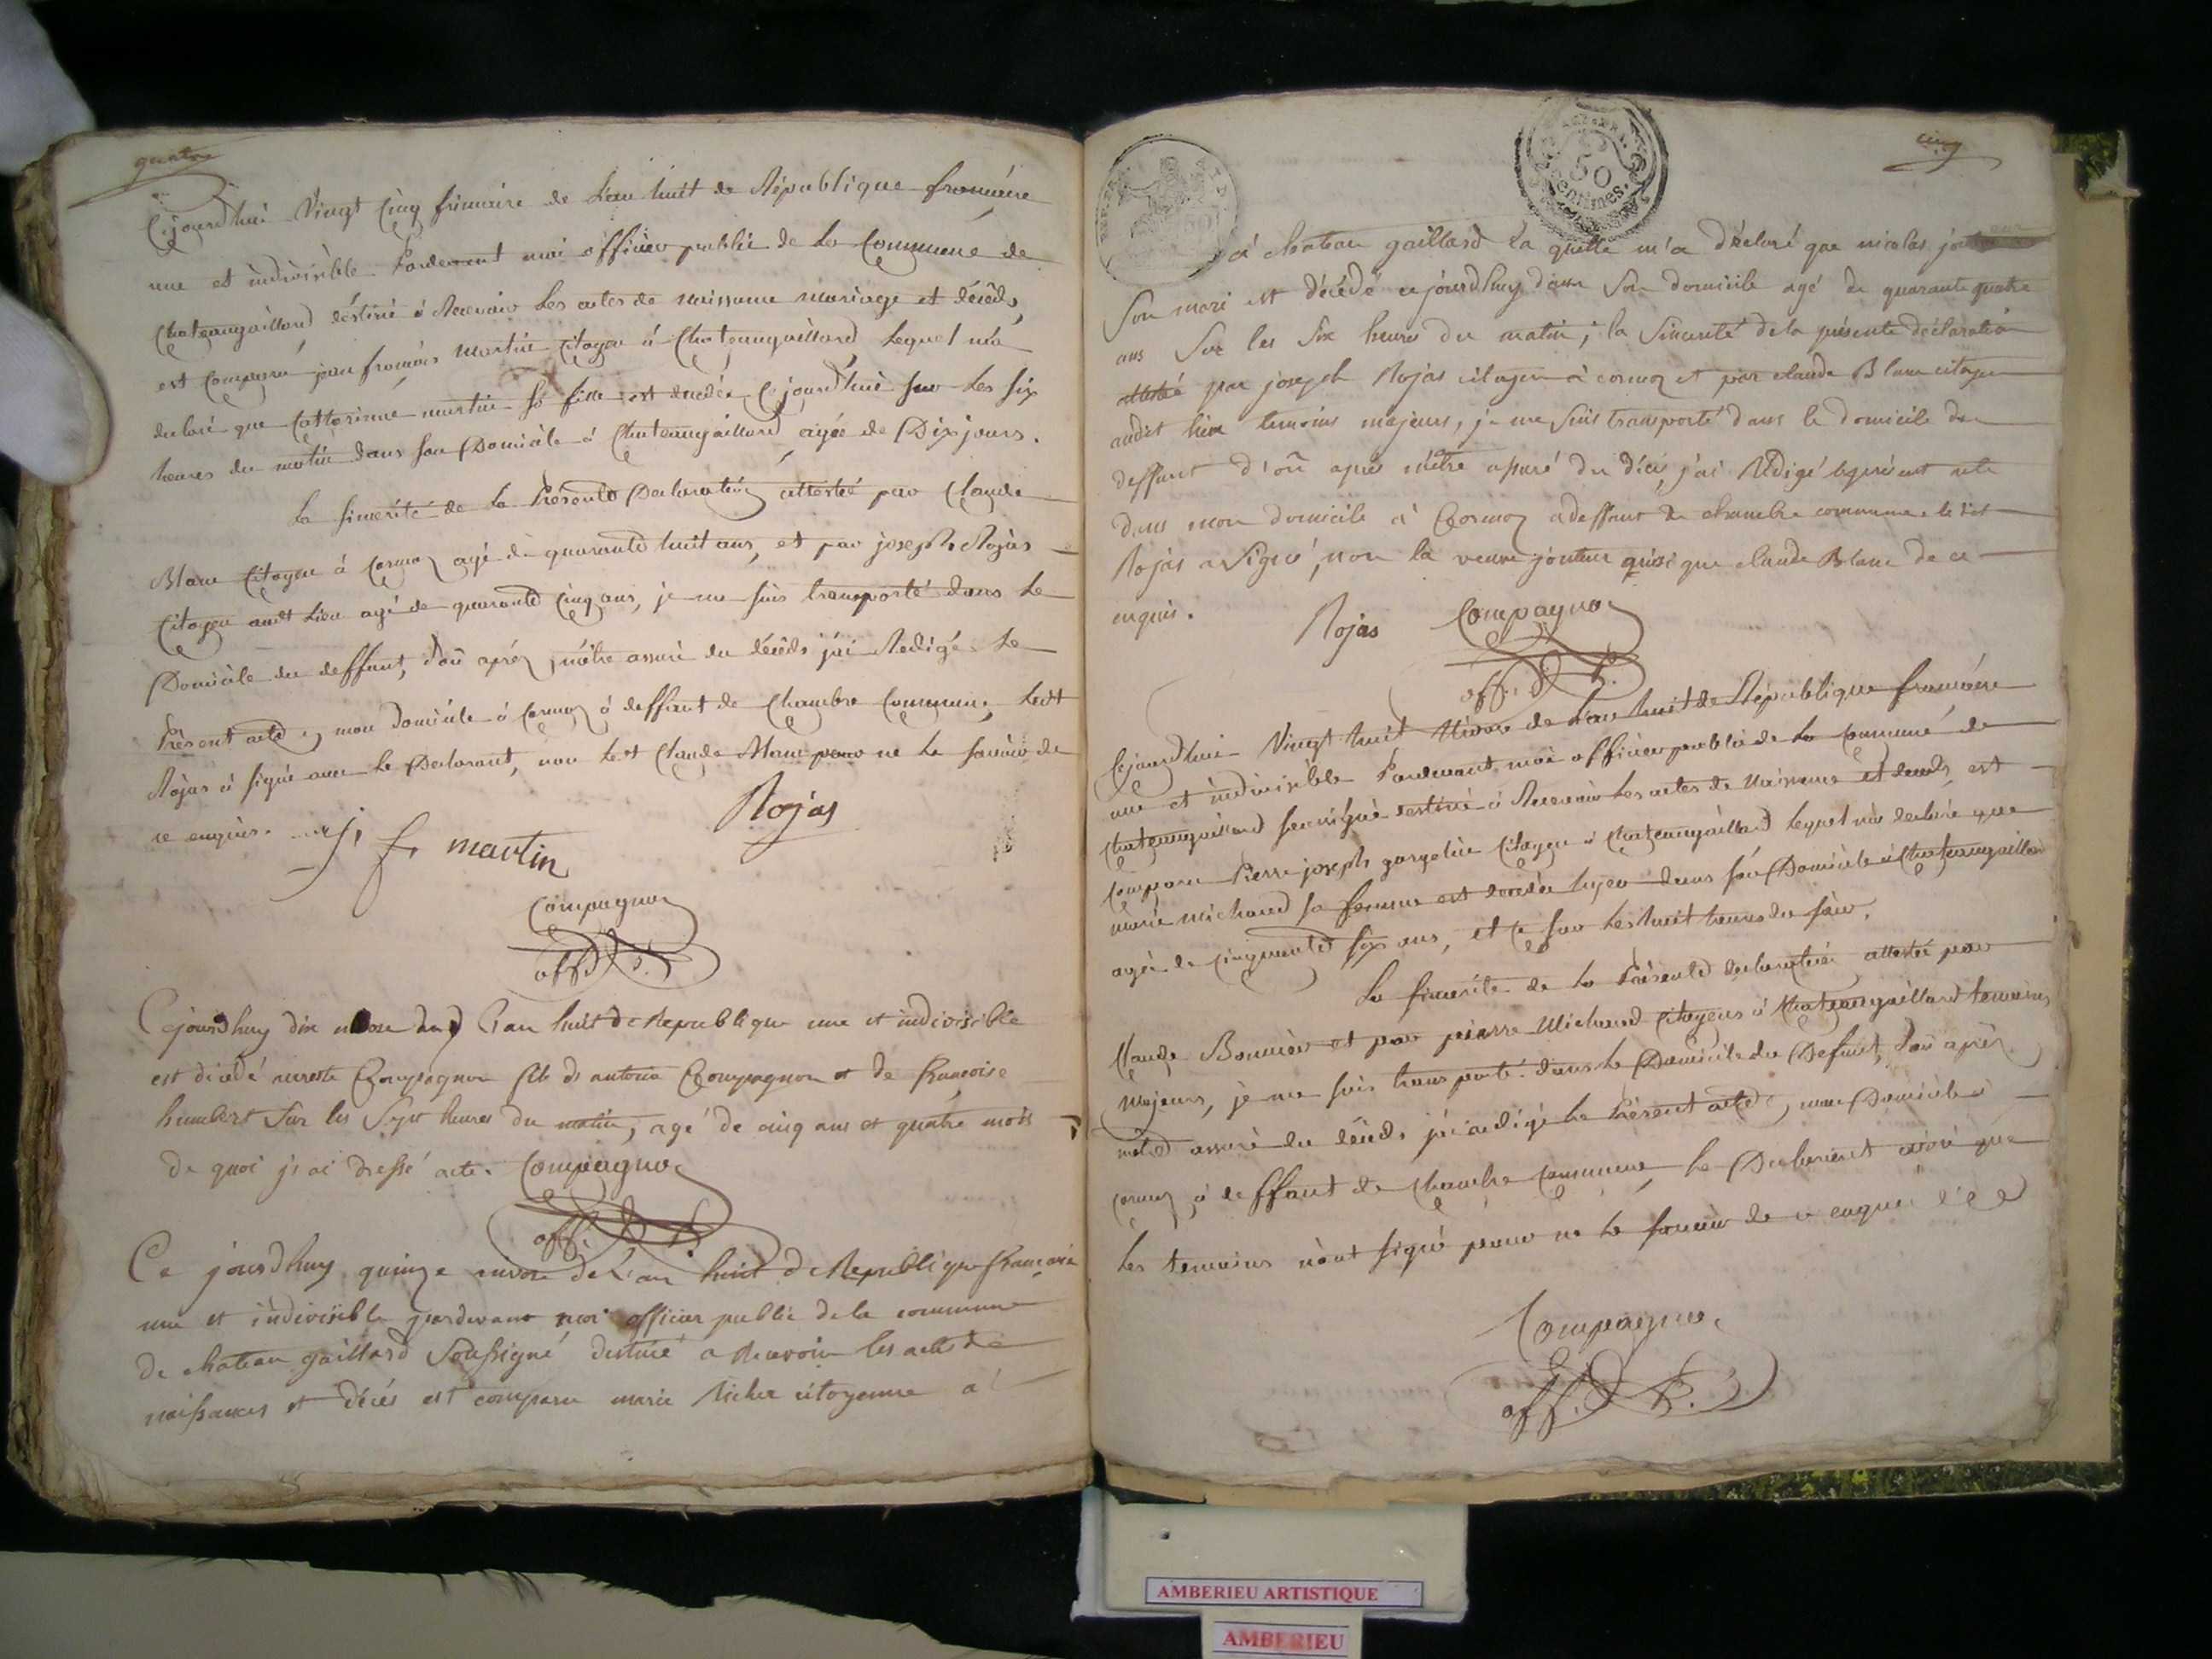 quatre
Cejourdhui Vingt Cinq frimaire de L'an huit de République francoise
une et indivisible Pardevant moi officier public de la Commune de
Chateaugaillard déstiné à Recevoir les actes de naissance mariage et décéds,
est Comparu jean francois Martin Citoyen à Chateaugaillard Lequel m'a
declaré que Catterinne martin sa fille est decedée Cejourd'hui sur les six
heures du matin dans son Domicile à Chateaugaillard, agée de Dix jours.
La sincérité de la Présente Declaration attesté par Claude
Blanc Citoyen à Cormoz agé de quarante huit ans, et par joseph Rojas
Citoyen audt Lieu agé de quarante Cinq ans, je me suis transporté dans Le
Domicile du deffunt, d'où aprés m'être assuré du décéds j'ai Redigé Le
Présent acte en mon domicile à Cormoz à deffaut de Chambre Commune, Ledt
Rojas à signé avec le Declarant, non Ledt Claude Blanc pour ne le savoir de
ce enquis.
j. f. martin
Rojas
Compagnon
off. P.
Cejourdhuy dix nivose de L'an huit de Republique une et indivisible
est décédé Compagnon fils de antoine Compagnon et de francoise
humbert Sur les Sept heures du matin, agé de cinq ans et quatre mois
de quoi j'ai dressé acte. Compagnon
off. P.
Ce jourdhuy quinze nivose de L'an huit de Republique francaise
une et indivisible pardevant moi officier public de la commune
de chateau gaillard Soussigné destiné a Recevoir les actes de
naissances et décés est comparu marie Richer citoyenne a
cinq
50
Centimes.
à chateau gaillard La quelle m'a déclaré que nicolas
Son mari est décédé cejourdhuy dans Son domicile agé de quarante quatre
ans Sur les Six heures du matin; la Sincerité de la présente déclaration
attesté par joseph Rojas citoyen à cormoz et par claude Blanc citoyen
audit lieu temoins majeurs, je me suis transporté dans le domicile du
deffunt d'où après m'être assuré du décès, j'ai Rédigé le présent acte
dans mon domicile à Cormoz a deffaut de chambre commune. le dit
Rojas a Signé, non la veuve jouteur que claude Blanc de ce
enquis.
Rojas Compagnon
off. P.
Cejourdhui Vingt huit Nivose de L'an huit de République francoise
une et indivisible Pardevant moi officier public de la Commune de
Chateaugaillard soussigné destiné à Recevoir les actes de Naissance et deceds, est
Comparu Pierre joseph Citoyen à Chateaugaillard Lequel m'a declaré que
marie michaud sa femme est decedée hyer dans son Domicile à Chateaugaillard
agée de Cinquante six ans, et Ce sur Les huit heures du soir.
La sincerité de la Présente declaration attestée par
Claude Bonnier et par pierre Michaud Citoyens à Chateaugaillard temoins
Majeurs, je me suis transporté dans le Domicile du Defunt, d'où aprés
m'être assuré du décéds j'ai redigé le Présent acte en mon Domicile à
Cormoz, à deffaut de Chambre Commune, le Declarant ainsi que
les temoins n'ont signé pour ne le savoir de ce enquis
Compagnon
off. P.
AMBERIEU ARTISTIQUE
AMBERIEU